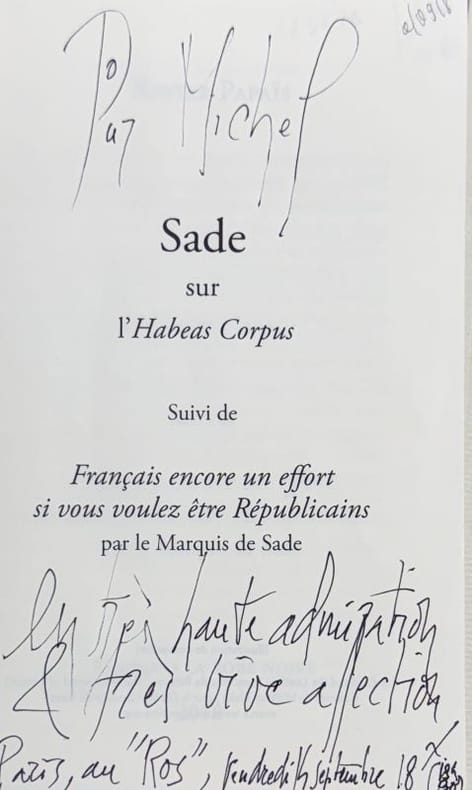 Pour Michel
Sade
sur
l'Habeas Corpus
Suivi de
Français encore un effort
si vous voulez être Républicains
par le Marquis de Sade
En très haute admiration
& très vive affection
Paris, au "Ros", vendredi septembre 18